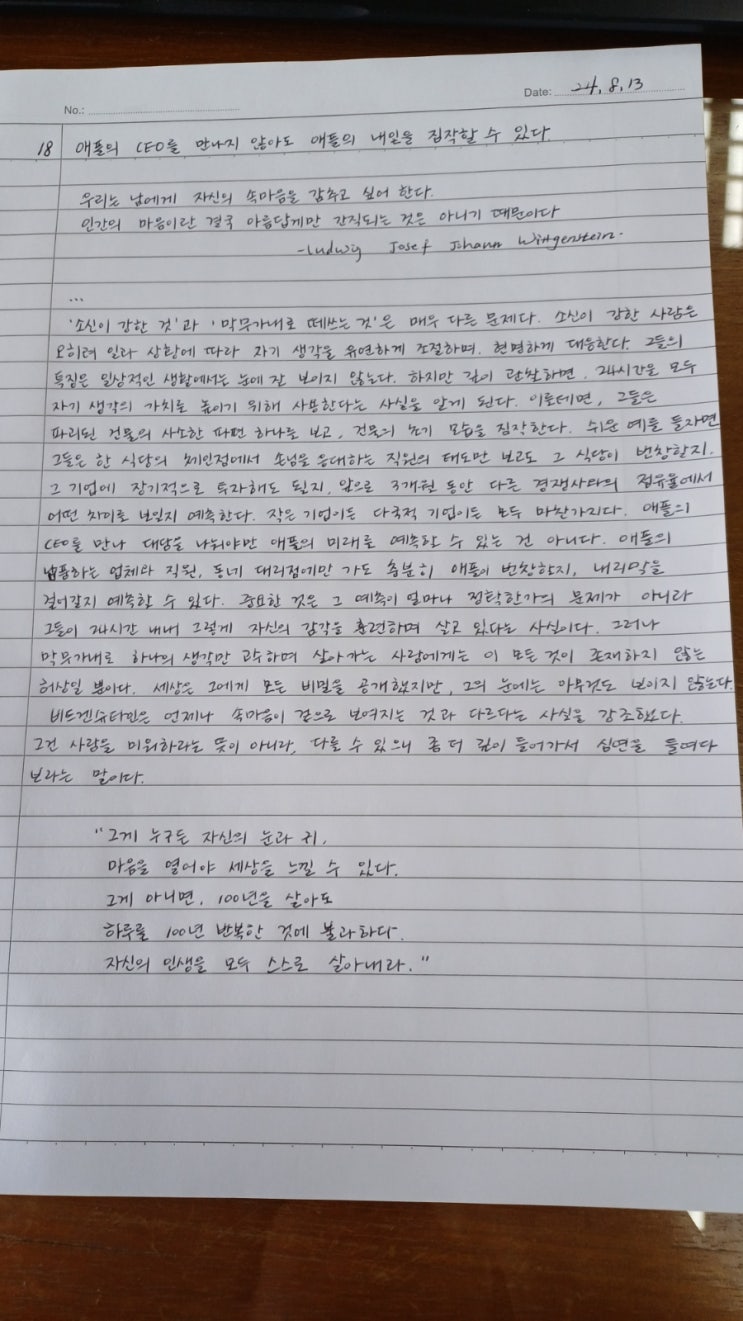 No.:
Date: 24, 8, 13
18 애플의 CEO를 만나지 않아도 애플의 내일을 짐작할 수 있다.
우리는 남에게 자신의 속마음을 감추고 싶어 한다.
인간의 마음이란 결국 아름답게만 간직되는 것은 아니기 때문이다
-Ludwig Josef Johann Wittgenstein-
...
'소신이 강한 것'과 '막무가내로 떼쓰는 것'은 매우 다른 문제다. 소신이 강한 사람은
오히려 일과 상황에 따라 자기 생각을 유연하게 조절하며, 현명하게 대응한다. 그들의
특징은 일상적인 생활에서는 눈에 잘 보이지 않는다. 하지만 깊이 관찰하면, 24시간을 모두
자기 생각의 가치를 높이기 위해 사용한다는 사실을 알게 된다. 이를테면, 그들은
파괴된 건물의 사소한 파편 하나를 보고, 건물의 초기 모습을 짐작한다. 쉬운 예를 들자면
그들은 한 식당의 체인점에서 손님을 응대하는 직원의 태도만 보고도 그 식당이 번창할지,
그 기업에 장기적으로 투자해도 될지, 앞으로 3개월 동안 다른 경쟁사와의 점유율에서
어떤 차이를 보일지 예측한다. 작은 기업이든 다국적 기업이든 모두 마찬가지다. 애플의
CEO를 만나 대담을 나눠야만 애플의 미래를 예측할 수 있는 건 아니다. 애플의
납품하는 업체와 직원, 동네 대리점에만 가도 충분히 애플이 번창할지, 내리막을
걸어갈지 예측할 수 있다. 중요한 것은 그 예측이 얼마나 정확한가의 문제가 아니라
그들이 24시간 내내 그렇게 자신의 감각을 훈련하며 살고 있다는 사실이다. 그러나
막무가내로 하나의 생각만 고수하며 살아가는 사람에게는 이 모든 것이 존재하지 않는
허상일 뿐이다. 세상은 그에게 모든 비밀을 공개했지만, 그의 눈에는 아무것도 보이지 않는다.
비트겐슈타인은 언제나 속마음이 겉으로 보여지는 것과 다르다는 사실을 강조했다.
그건 사람을 미워하라는 뜻이 아니라, 다를 수 있으니 좀 더 깊이 들어가서 심연을 들여다
보라는 말이다.
"그게 누구든 자신의 눈과 귀,
마음을 열어야 세상을 느낄 수 있다.
그게 아니면, 100년을 살아도
하루를 100년 반복한 것에 불과하다.
자신의 인생을 모두 스스로 살아내라."